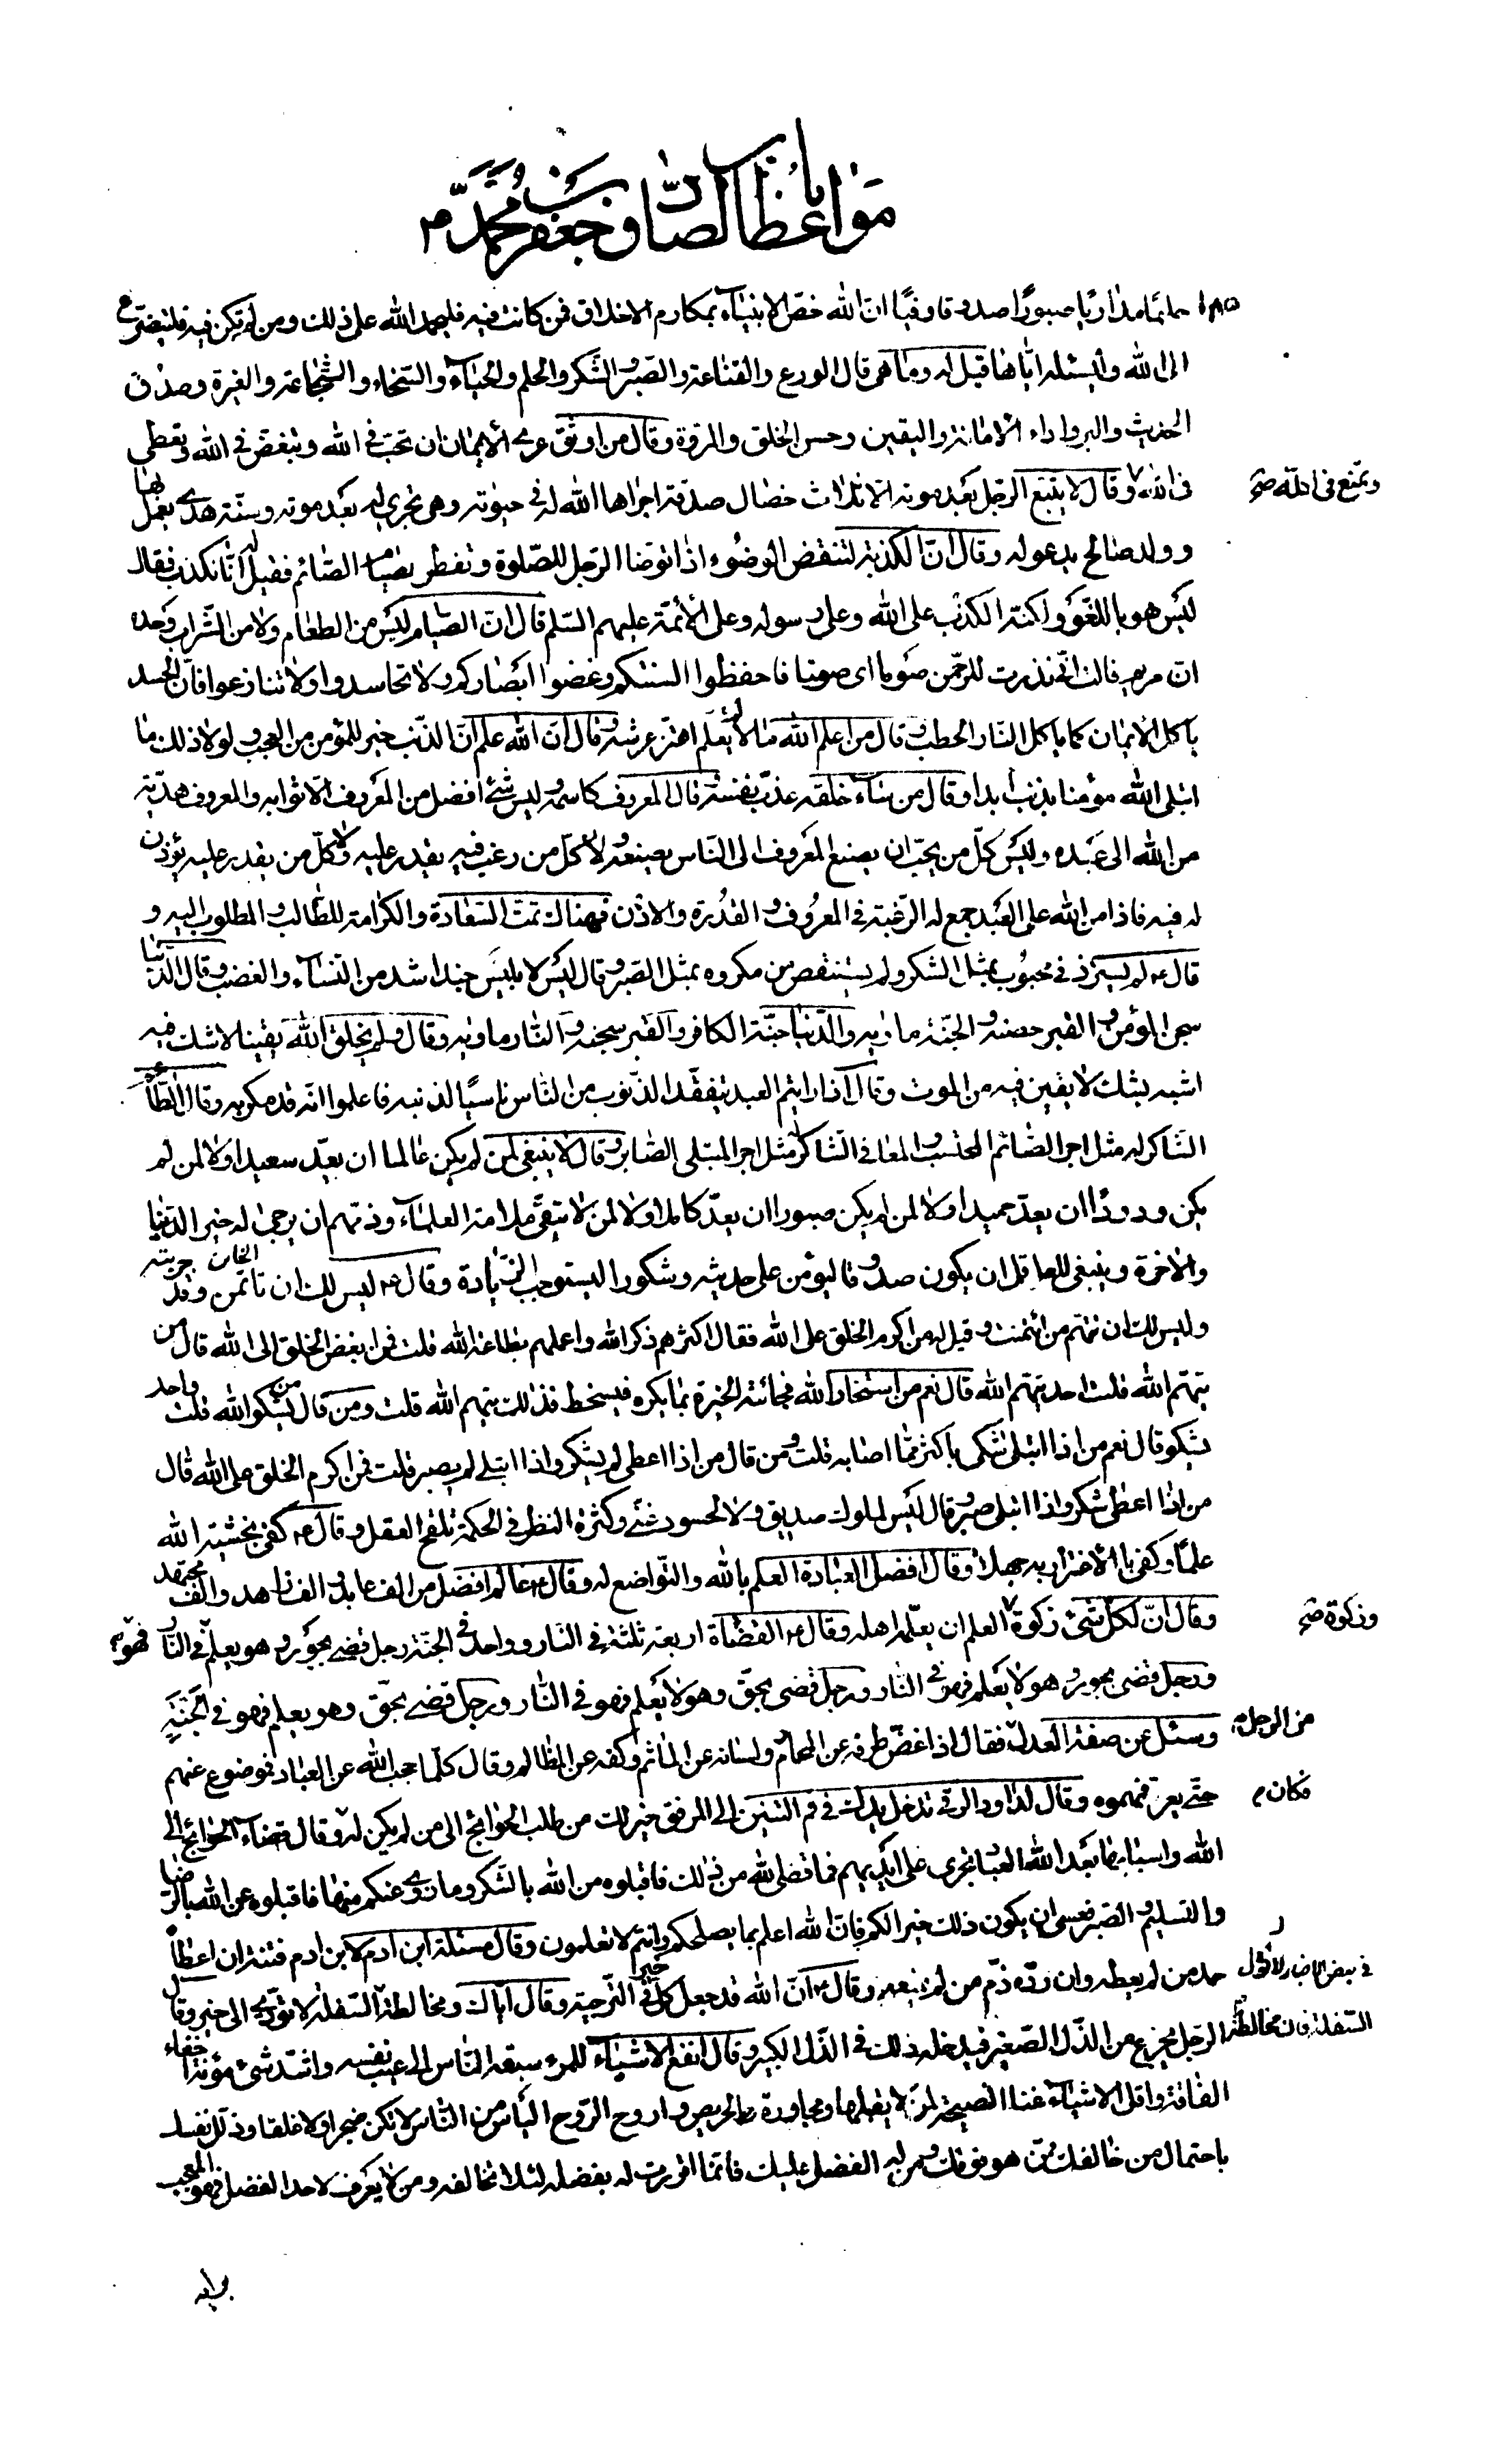 باب
مواعظ الصادق جعفر بن محمد ع
١٨٥
حاتما مداريا صبورا صدوقا وفيا ان الله خص الانبياء بمكارم الاخلاق فمن كانت فيه فليحمد الله على ذلك ومن لم تكن فيه فليتضرع
الى الله وليسئله اياها قيل له وما هى قال الورع والقناعة والصبر والشكر والحلم والحياء والسخاء والشجاعة والغيرة وصدق
الحديث والبر واداء الامانة واليقين وحسن الخلق والمروة وقال من اوثق عرى الايمان ان تحب فى الله وتبغض فى الله وتعطى
وتمنع فى الله صح
فى الله وقال لا يتبع الرجل بعد موته الا ثلاث خصال صدقة اجراها الله له فى حيوته وهى تجرى له بعد موته وسنة هدى يعمل بها
وولد صالح يدعو له وقال ان الكذبة لتنقض الوضوء اذا توضا الرجل للصلوة وتفطر الصيام الصائم فقيل له انا نكذب فقال
ليس هو باللغو ولكنه الكذب على الله وعلى رسوله وعلى الائمة عليهم السلم قال ان الصيام ليس من الطعام ولا من الشراب وحده
ان مريم قالت انى نذرت للرحمن صوما اى صمتا فاحفظوا السنتكم وغضوا ابصاركم ولا تحاسدوا ولا تنازعوا فان الحسد
ياكل الايمان كما ياكل النار الحطب وقال من اعلم الله ما لا يعلم اهتز له عرشه وقال ان الله علم ان الذنب خير للمؤمن من العجب ولولا ذلك ما
ابتلى الله مؤمنا بذنب ابدا وقال من ساء خلقه عذب نفسه وقال المعروف كاسمه وليس شئ افضل من المعروف الا ثوابه والمعروف هدية
من الله الى عبده وليس كل من يحب ان يصنع المعروف الى الناس يصنعه ولا كل من رغب فيه يقدر عليه ولا كل من يقدر عليه يؤذن
له فيه فاذا من الله على العبد جمع له الرغبة فى المعروف والقدرة والاذن فهنالك تمت السعادة والكرامة للطالب والمطلوب اليه و
قال ع لم يستزد فى محبوب بمثل الشكر ولم يستنقص من مكروه بمثل الصبر وقال ليس لابليس جند اشد من النساء والغضب وقال الدنيا
سجن المؤمن والقبر حصنه والجنة ماويه والدنيا جنة الكافر والقبر سجنه والنار ماويه وقال ولم يخلق الله يقينا لا شك فيه
اشبه بشك لا يقين فيه من الموت وقال اذا رايتم العبد يتفقد الذنوب من الناس ناسيا لذنبه فاعلموا انه قد مكر به وقال الطاعم
الشاكر له مثل اجر الصائم المحتسب والمعافى الشاكر له مثل اجر المبتلى الصابر وقال لا ينبغى لمن لم يكن عالما ان يعد سعيدا ولا لمن لم
يكن ودودا ان يعد حميدا ولا لمن لم يكن صبورا ان يعد كاملا ولا لمن لا يتقى ملامة العلماء وذمهم ان يرجى له خير الدنيا
والاخرة وينبغى للعاقل ان يكون صدوقا ليؤمن على حديثه وشكورا ليستوجب الزيادة وقال ع ليس لك ان تاتمن الخائن وقد جربته
وليس لك ان تتهم من ائتمنت وقيل له من اكرم الخلق على الله فقال اكثرهم ذكرا لله واعملهم بطاعة الله قلت فمن ابغض الخلق الى الله قال من
يتهم الله قلت احد يتهم الله قال نعم من استخار الله فجائته الخيرة بما يكره فيسخط فذلك يتهم الله قلت ومن قال من يشكو الله قلت واحد
يشكو قال نعم من اذا ابتلى شكى باكثر مما اصابه قلت ومن قال من اذا اعطى لم يشكر واذا ابتلى لم يصبر قلت فمن اكرم الخلق على الله قال
من اذا اعطى شكر واذا ابتلى صبر وقال ليس لملوك صديق ولا لحسود غنى وكثرة النظر فى الحكمة تلقح العقل وقال ع كفى بخشية الله
علما وكفى بالاغترار به جهلا وقال افضل العبادة العلم بالله والتواضع له وقال ع عالم افضل من الف عابد والف زاهد والف مجتهد
وزكوة صح
وقال ان لكل شئ زكوة العلم ان يعلمه اهله وقال ع القضاة اربعة ثلثة فى النار وواحد فى الجنة رجل قضى بجور وهو يعلم فهو فى النار
ورجل قضى بجور وهو لا يعلم فهو فى النار ورجل قضى بحق وهو لا يعلم فهو فى النار ورجل قضى بحق وهو يعلم فهو فى الجنة
من الرجل
وسئل عن صفة العدل فقال اذا غض طرفه عن المحارم ولسانه عن الماثم وكفه عن المظالم وقال كلما حجب الله عن العباد فموضوع عنهم
فكان م
حتى يعرفهموه وقال لداود الرقى تدخل يدك فى فم التنين الى المرفق خير لك من طلب الحوائج الى من لم يكن له وقال قضاء الحوائج الى
الله واسبابها بعد الله العباد تجرى على ايديهم فما قضى الله من ذلك فاقبلوه من الله بالشكر وما زوى عنكم منها فاقبلوه عن الله بالرضا
والتسليم والصبر فعسى ان يكون ذلك خيرا لكم فان الله اعلم بما يصلحكم وانتم لا تعلمون وقال مسئلة ابن ادم لابن ادم فتنة ان اعطاه
حمد من لم يعطه وان رده ذم من لم يمنعه وقال ع ان الله قد جعل كل خير فى الترجية وقال اياك ومخالطة السفلة لا تؤدى الى خير وقال
السفلة فان مخالطة
الرجل يجزع من الذل الصغير فيدخله ذلك فى الذل الكبير وقال انفع الاشياء للمرء سبقه الناس الى عيب نفسه واشد شئ مؤنة اخفاء
الفاقة واقل الاشياء غناء النصيحة لمن لا يقبلها ومجاورة الحريص واروح الروح الياس من الناس لا تكن ضجرا ولا غلقا وذلل نفسك
باحتمال من خالفك ممن هو فوقك ومن له الفضل عليك فانما اقررت له بفضله لئلا تخالفه ومن لا يعرف لاحد الفضل فهو المعجب
برايه